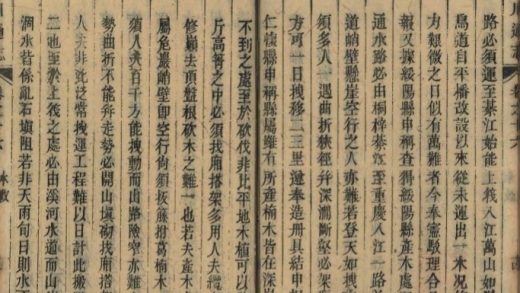 路必須運至綦江始能上筏入江萬山如
鳥道自平橋改設以來從未運出一木况
方艱微之日似有萬難者今奉憲駁理合
報又據綏陽縣申稱查得綏陽縣產木處
通水路必由桐梓綦江至重慶入江一路
道峭壁縣崖空行之人亦難若登天如拽
須多人一遇曲折狹徑并深澗斷壑必
方可一日拽移二三里遵奉造册具結申
仁懷縣申稱縣屬雖有所產楠木皆在深
不到之處至於砍伐非比平地木植可以
斤高箐之中必須找廂搭架多用人夫纜
修顛去頂盤根砍木之難一也若夫產木
屬危巖峭壁即空行尚須扳藤拊葛楠木
須人夫百千方能拽動而出路險窄亦
勢曲折不能奔走勢必開山填砌找廂搭
人夫非此泛常拽運工程難以日計此搬
二也至於上筏之處必由溪河水道而山
澗水皆係亂石塡阻若非天雨旬日則水